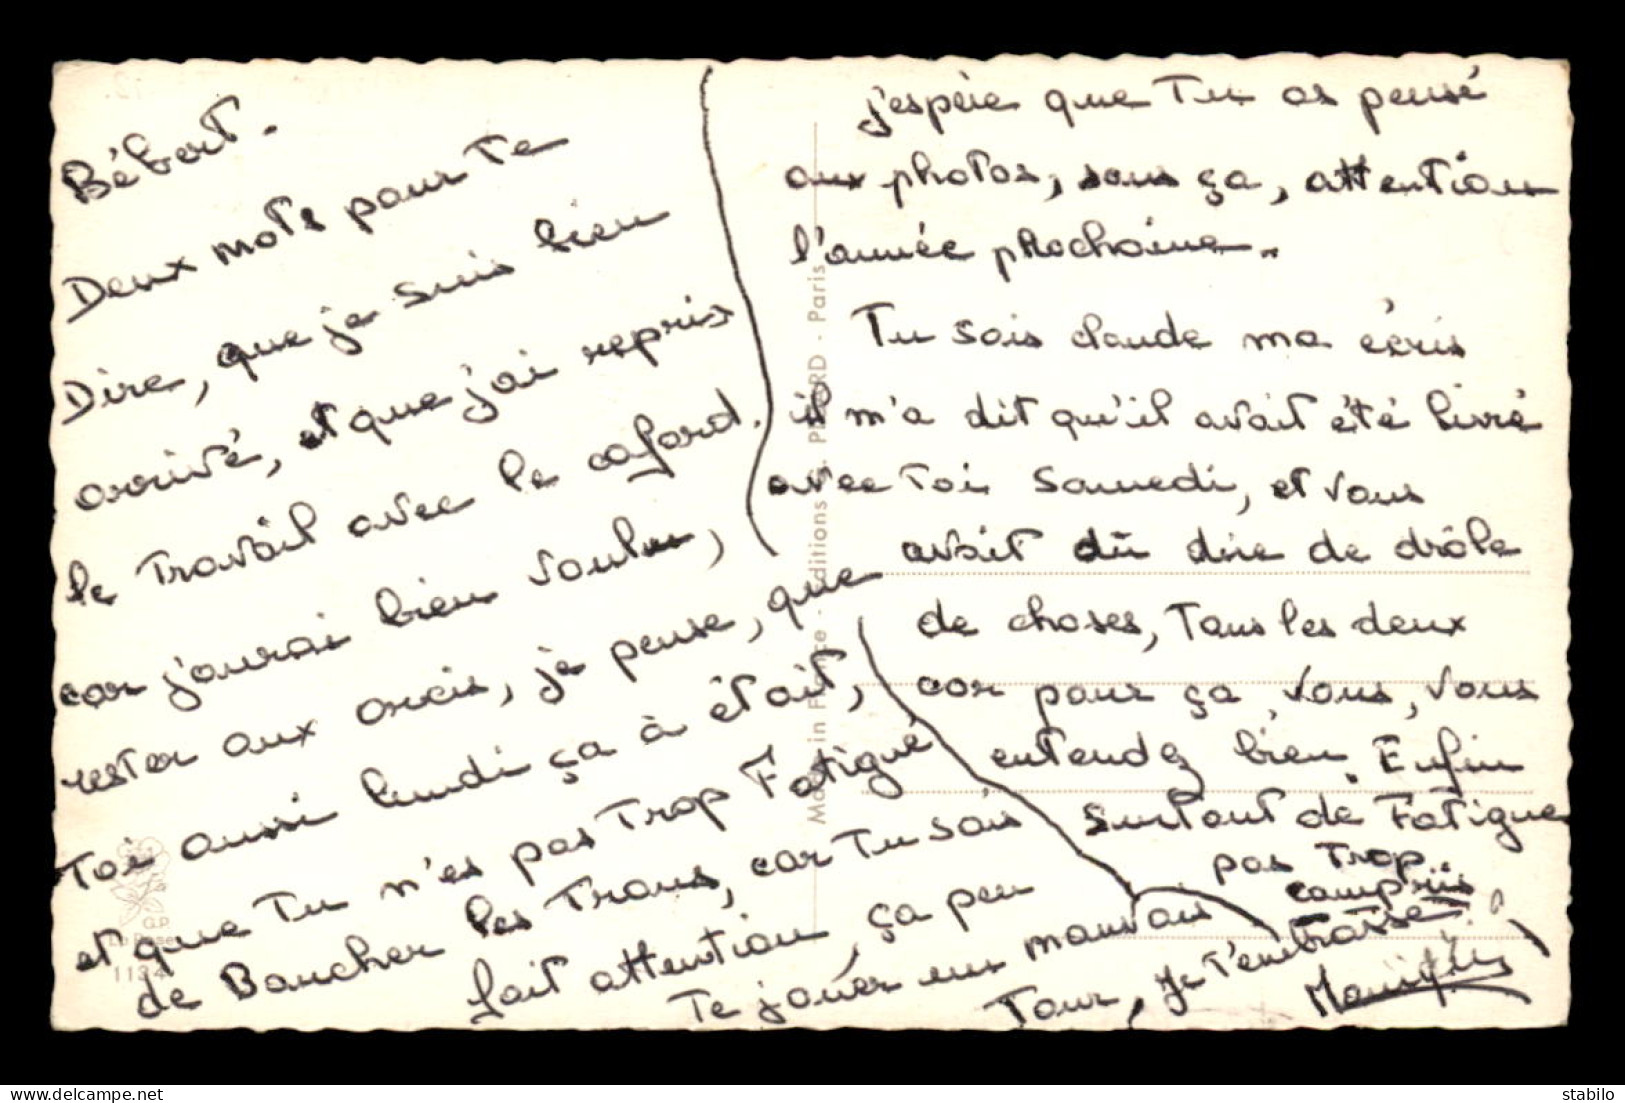 Bébert.
Deux mots pour te
Dire, que je suis bien
arrivé, et que j'ai repris
le Travail avec le cafard.
car j'aurai bien voulu,
rester aux
je pense, que
Toi aussi lundi ça à était,
et que Tu n'es pas Trop Fatigué
de Boucher les Trous, car Tu sais
fait attention, ça peu
Te jouer un mauvais
Tour, je T'embrasse
j'espère que Tu as pensé
aux photos, sans ça, attention
l'année prochaine..
Tu sais claude ma écris
il m'a dit qu'il avait été livré
avec Toi Samedi, et vous
avait dû dire de drôle
de choses, Tous les deux
car pour ça vous, vous
entendez bien. Enfin
surtout de Fatigue
pas Trop
compris
Made in France - Editions
- Paris
G.P.
La Rose
1134
stabilo